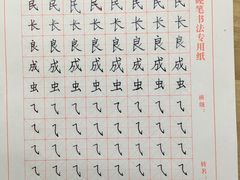 民 民 民 民 民 民 民 民
长 长 长 长 长 长 长 长
良 良 良 良 良 良 良 良
成 成 成 成 成 成 成 成
虫 虫 虫 虫 虫 虫 虫 虫
⺄ ⺄ ⺄ ⺄ ⺄ ⺄ ⺄ ⺄
⺄ ⺄ ⺄ ⺄ ⺄ ⺄ ⺄ ⺄
⺄ ⺄ ⺄ ⺄ ⺄ ⺄ ⺄ ⺄
⺄ ⺄ ⺄ ⺄ ⺄ ⺄ ⺄ ⺄
硬笔书法专用纸
班级：
姓名